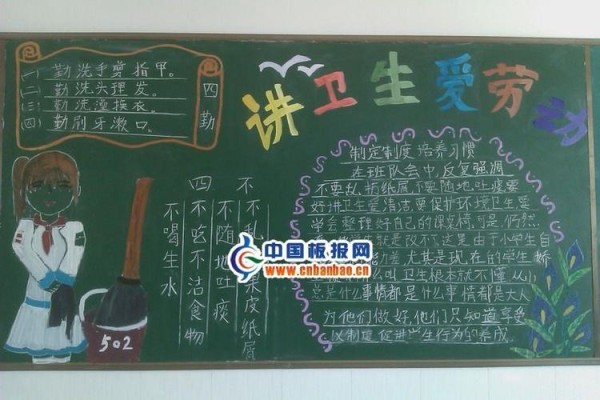 (一) 勤洗手剪指甲。
(二) 勤洗头理发。
(三) 勤洗澡换衣。
(四) 勤刷牙漱口。
四勤
讲卫生爱劳动
不乱 果皮纸屑
不随地吐痰
四不吃不洁食物
不喝生水
502
制定制度培养习惯
在班队会中,反复强调
不要乱扔纸屑,不要随地吐痰要
好讲卫生爱清洁要保护环境卫生要
学会整理好自己的课桌椅,可是仍然
就是改不 这里由于小学生自
差尤其是现在的学生娇
叫卫生根本就不懂从小
总是什么事情都是什么事情都是大人
为他们做好,他们只知道享受
以制度促进学生行为的养成。
中国板报网
www.cnbanbao.cn